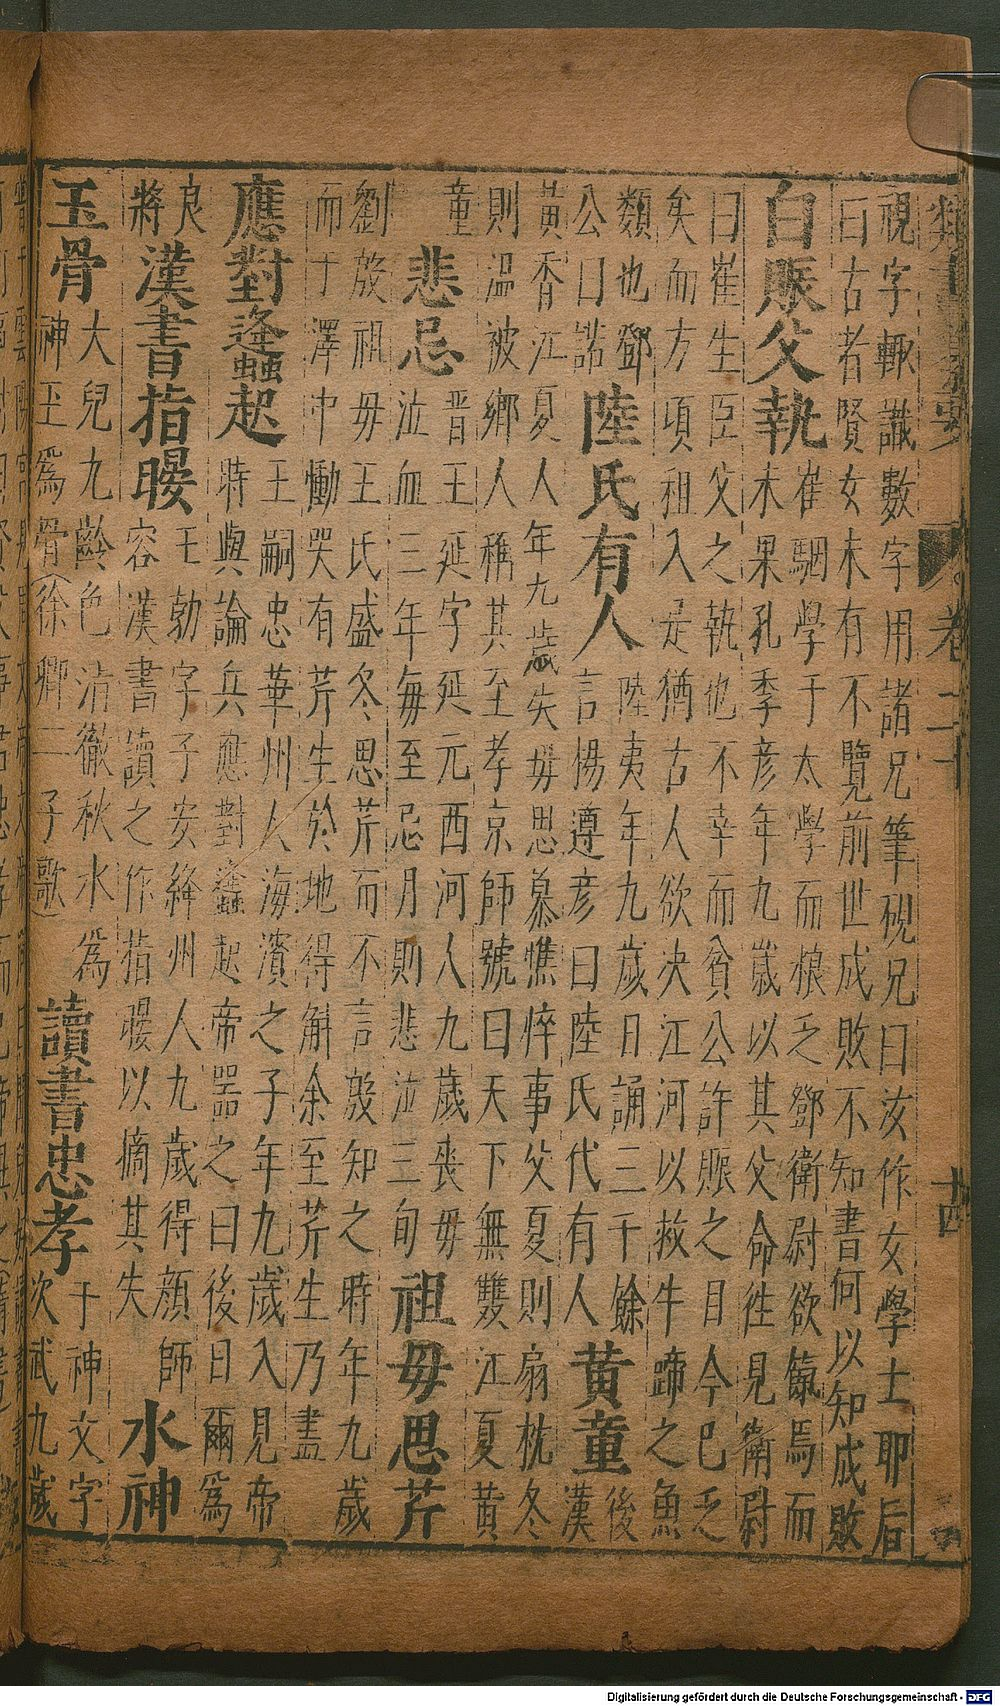 類書纂要 卷二十 十四
視字輙識數字用諸兄筆硯兄曰汝作女學士耶后
曰古者賢女未有不覽前世成敗不知書何以知成敗
白賑父執
崔駰學于太學而粮乏鄧衛尉欲餼焉而
未果孔季彥年九歲以其父命徃見衛尉
曰崔生臣父之執也不幸而貧公許賑之目今已乏
矣而方項祖入是猶古人欲决江河以救牛蹄之魚
類也鄧
公口諾
陸氏有人
陸夷年九歲日誦三千餘後
言楊遵彥曰陸氏代有人
黃童
漢
黃香江夏人年九歲失毋思慕憔悴事父夏則扇枕冬
則溫被鄉人稱其至孝京師號曰天下無雙江夏黃
童
悲忌
晋王延字延元西河人九歲喪毋
泣血三年每至忌月則悲泣三旬
祖毋思芹
劉殷祖毋王氏盛冬思芹而不言殷知之時年九歲
而于澤中慟哭有芹生於地得斛余至芹生乃盡
應對蠭起
王嗣忠華州人海濱之子年九歲入見帝
時與論兵應對蠭起帝器之曰後日爾爲
良
將
漢書指瑕
王勃字子安絳州人九歲得顏師
容漢書讀之作指瑕以摘其失
水神
玉骨
大兒九齡色清徹秋水爲
神玉爲骨(徐卿二子歌)
讀書忠孝
于神文字
次武九歲
Digitalisierung gefördert durch die Deutsche Forschungsgemeinschaft - DFG